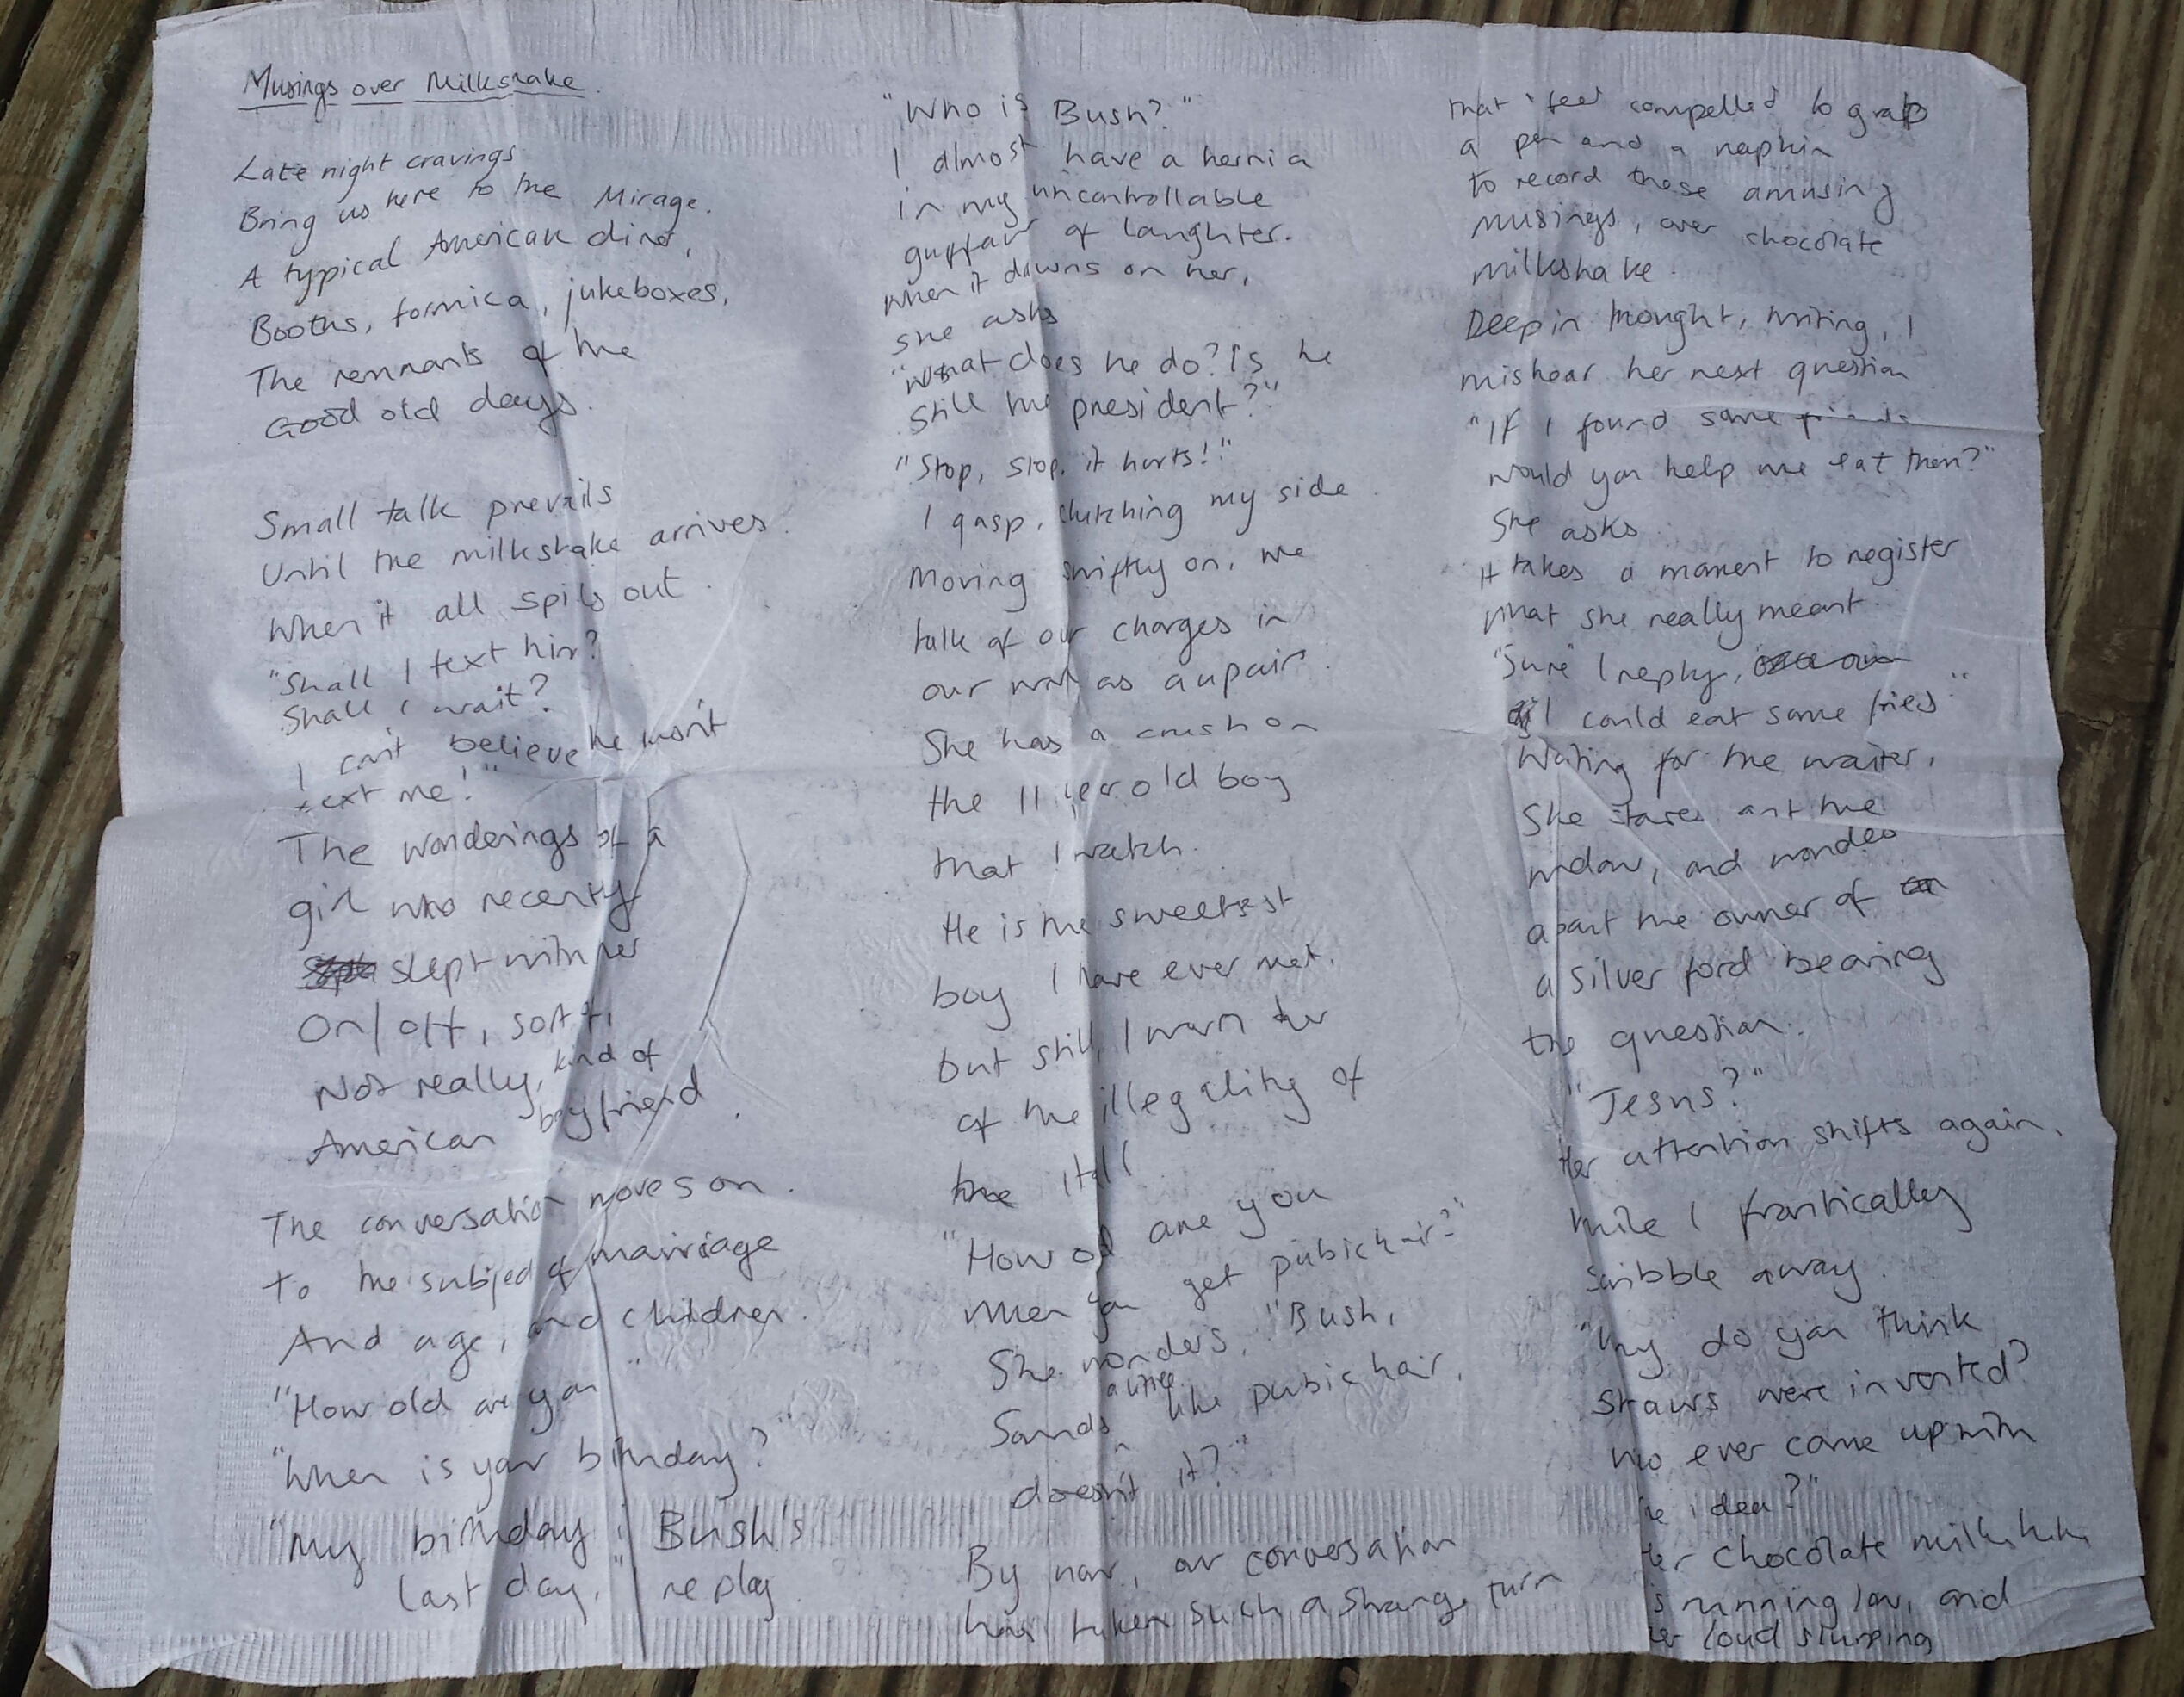 Musings over Milkshake.
Late night cravings
Bring us here to the Mirage.
A typical American diner,
Booths, formica, jukeboxes,
The remnants of the
Good old days.
Small talk prevails
Until the milkshake arrives.
When it all spils out.
"Shall I text him?
Shall I wait?
I can't believe he won't
text me!"
The wonderings of a
girl who recently
slept with her
On/off, sort of,
Not really, kind of
American boyfriend.
The conversation moves on.
To the subject of marriage
And age, and children.
"How old are you"
"When is your birthday?"
"My birthday is Bush's
last day," I replay.
"Who is Bush?"
I almost have a hernia
in my uncontrollable
guffaw of laughter.
When it dawns on her,
she asks
"What does he do? Is he
still the president?"
"Stop, stop, it hurts!"
I gasp, clutching my side.
Moving swiftly on, we
talk of our charges in
our work as aupairs.
She has a crush on
the 11 year old boy
that I watch.
He is the sweetest
boy I have ever met,
but still, I warn her
of the illegality of
"How old are you
when you get pubic hair?"
She wonders, "Bush,
Sounds a little like pubic hair,
doesn't it?"
By now, our conversation
has taken such a strange turn
that I feel compelled to grab
a pen and a napkin
to record these amusing
musings, over chocolate
milkshake.
Deep in thought, writing, I
mishear her next question
"If I found some
would you help me eat them?"
She asks.
It takes a moment to register
what she really meant.
"Sure" I reply,
I could eat some fries"
Waiting for the waiter,
She stares out the
window, and wonders
about the owner of
a silver ford bearing
the question.
"Jesus?"
Her attention shifts again,
While I frantically
scribble away.
"Why do you think
straws were invented?
Who ever came up with
the idea?"
Her chocolate milkshake
is running low, and
her loud slurping